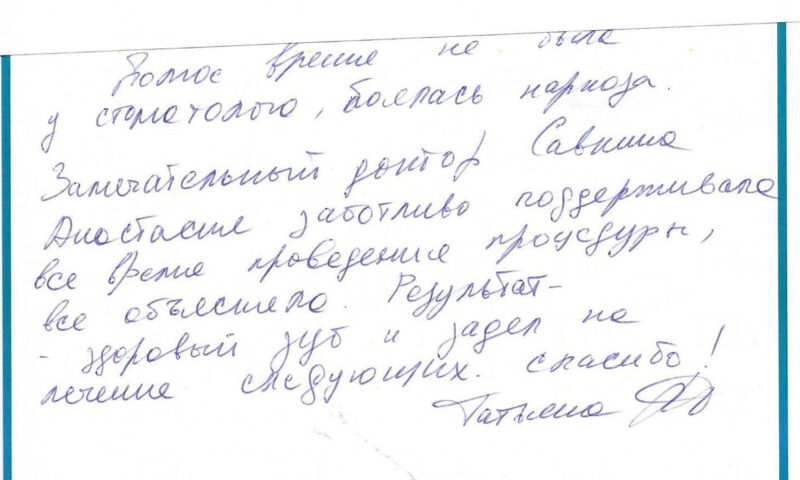 Долгое время не была
у стоматолога, боялась наркоза.
Замечательный доктор Савкина
Анастасия заботливо поддерживала
все время проведения процедуры,
все объясняла. Результат-
- здоровый зуб и задел на
лечение следующих. спасибо!
Татьяна